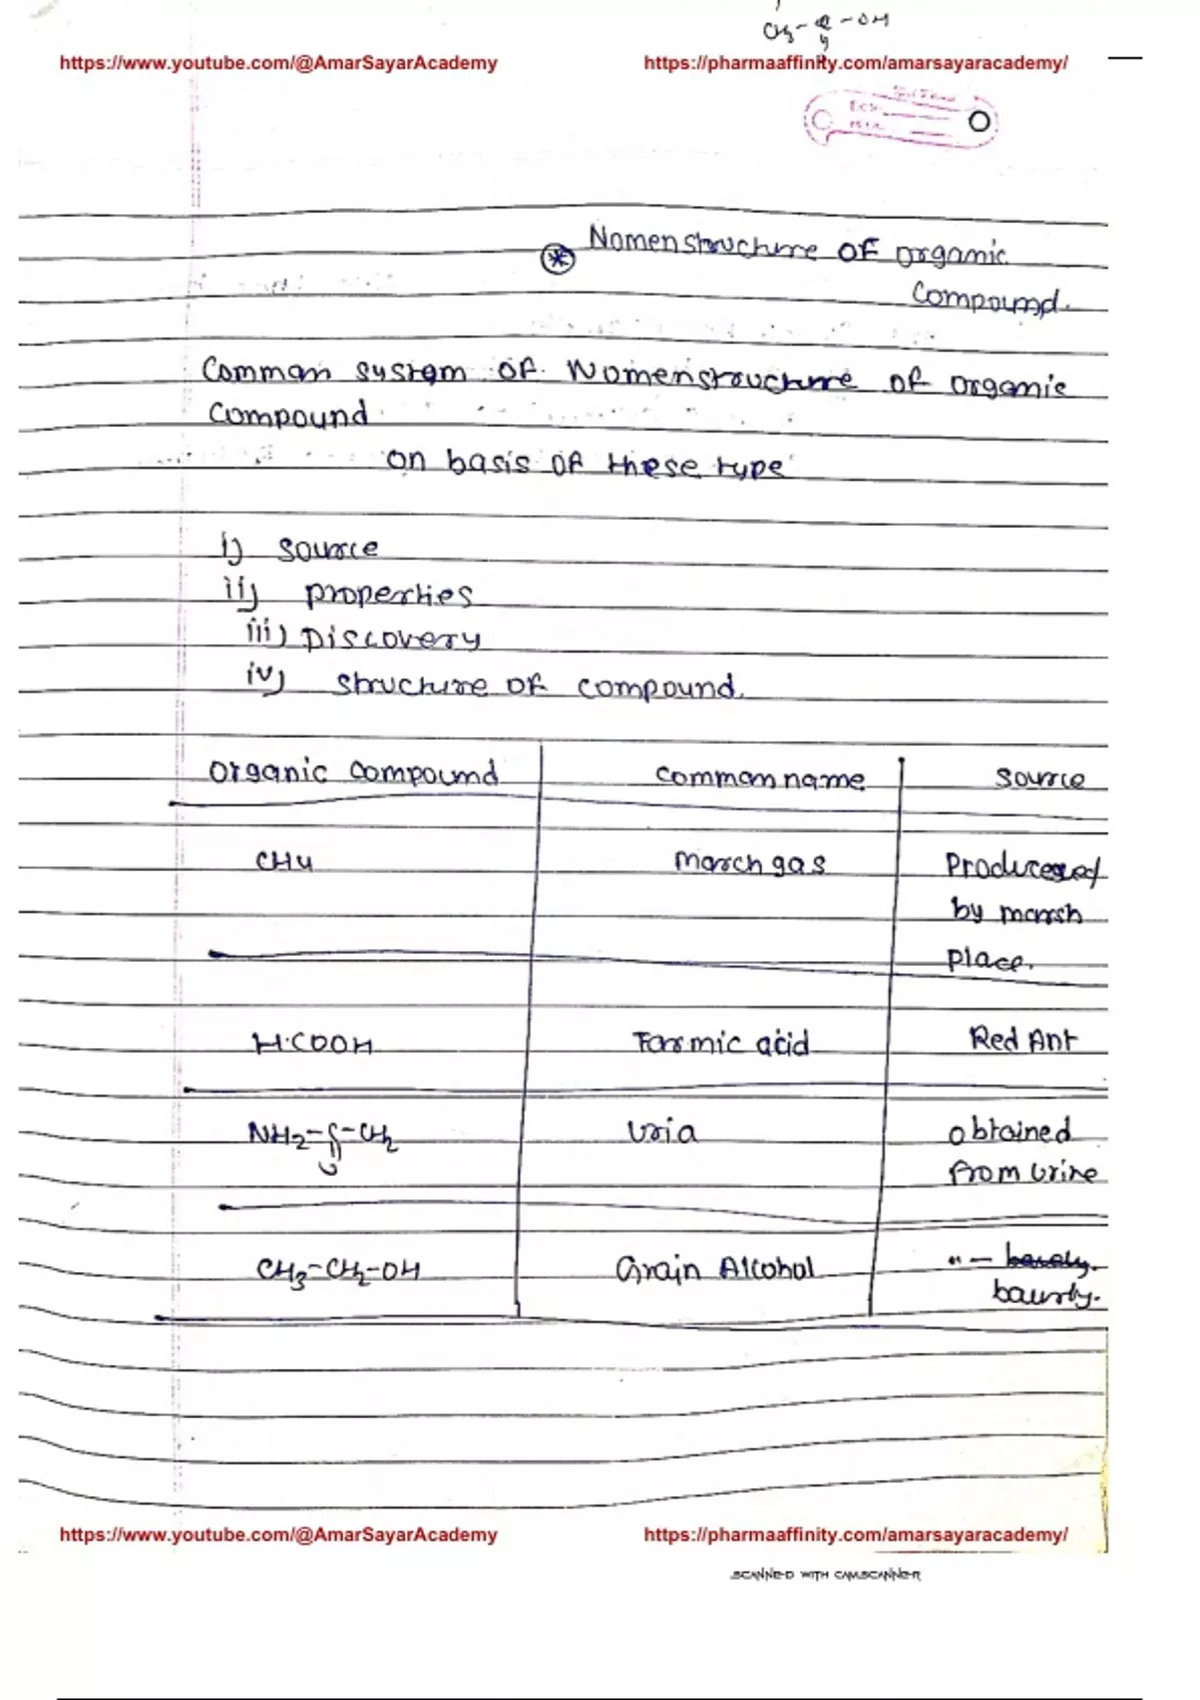 CH3-C-OH
https://www.youtube.com/@AmarSayarAcademy https://pharmaaffinity.com/amarsayaracademy/
Nomenstructure OF organic
compound.
Common system OF Nomenstructure of organic
compound
on basis of these type
i) source
ii) properties
iii) Discovery
iv) structure of compound.
organic compound common name source
CH4 march gas Produceed
by marsh
place.
H.COOH Formic acid Red Ant
NH2-C-CH2 Uria obtained
O from urine
CH3-CH2-OH Grain Alcohol "-
baurly.
https://www.youtube.com/@AmarSayarAcademy https://pharmaaffinity.com/amarsayaracademy/
SCANNED WITH CAMSCANNER